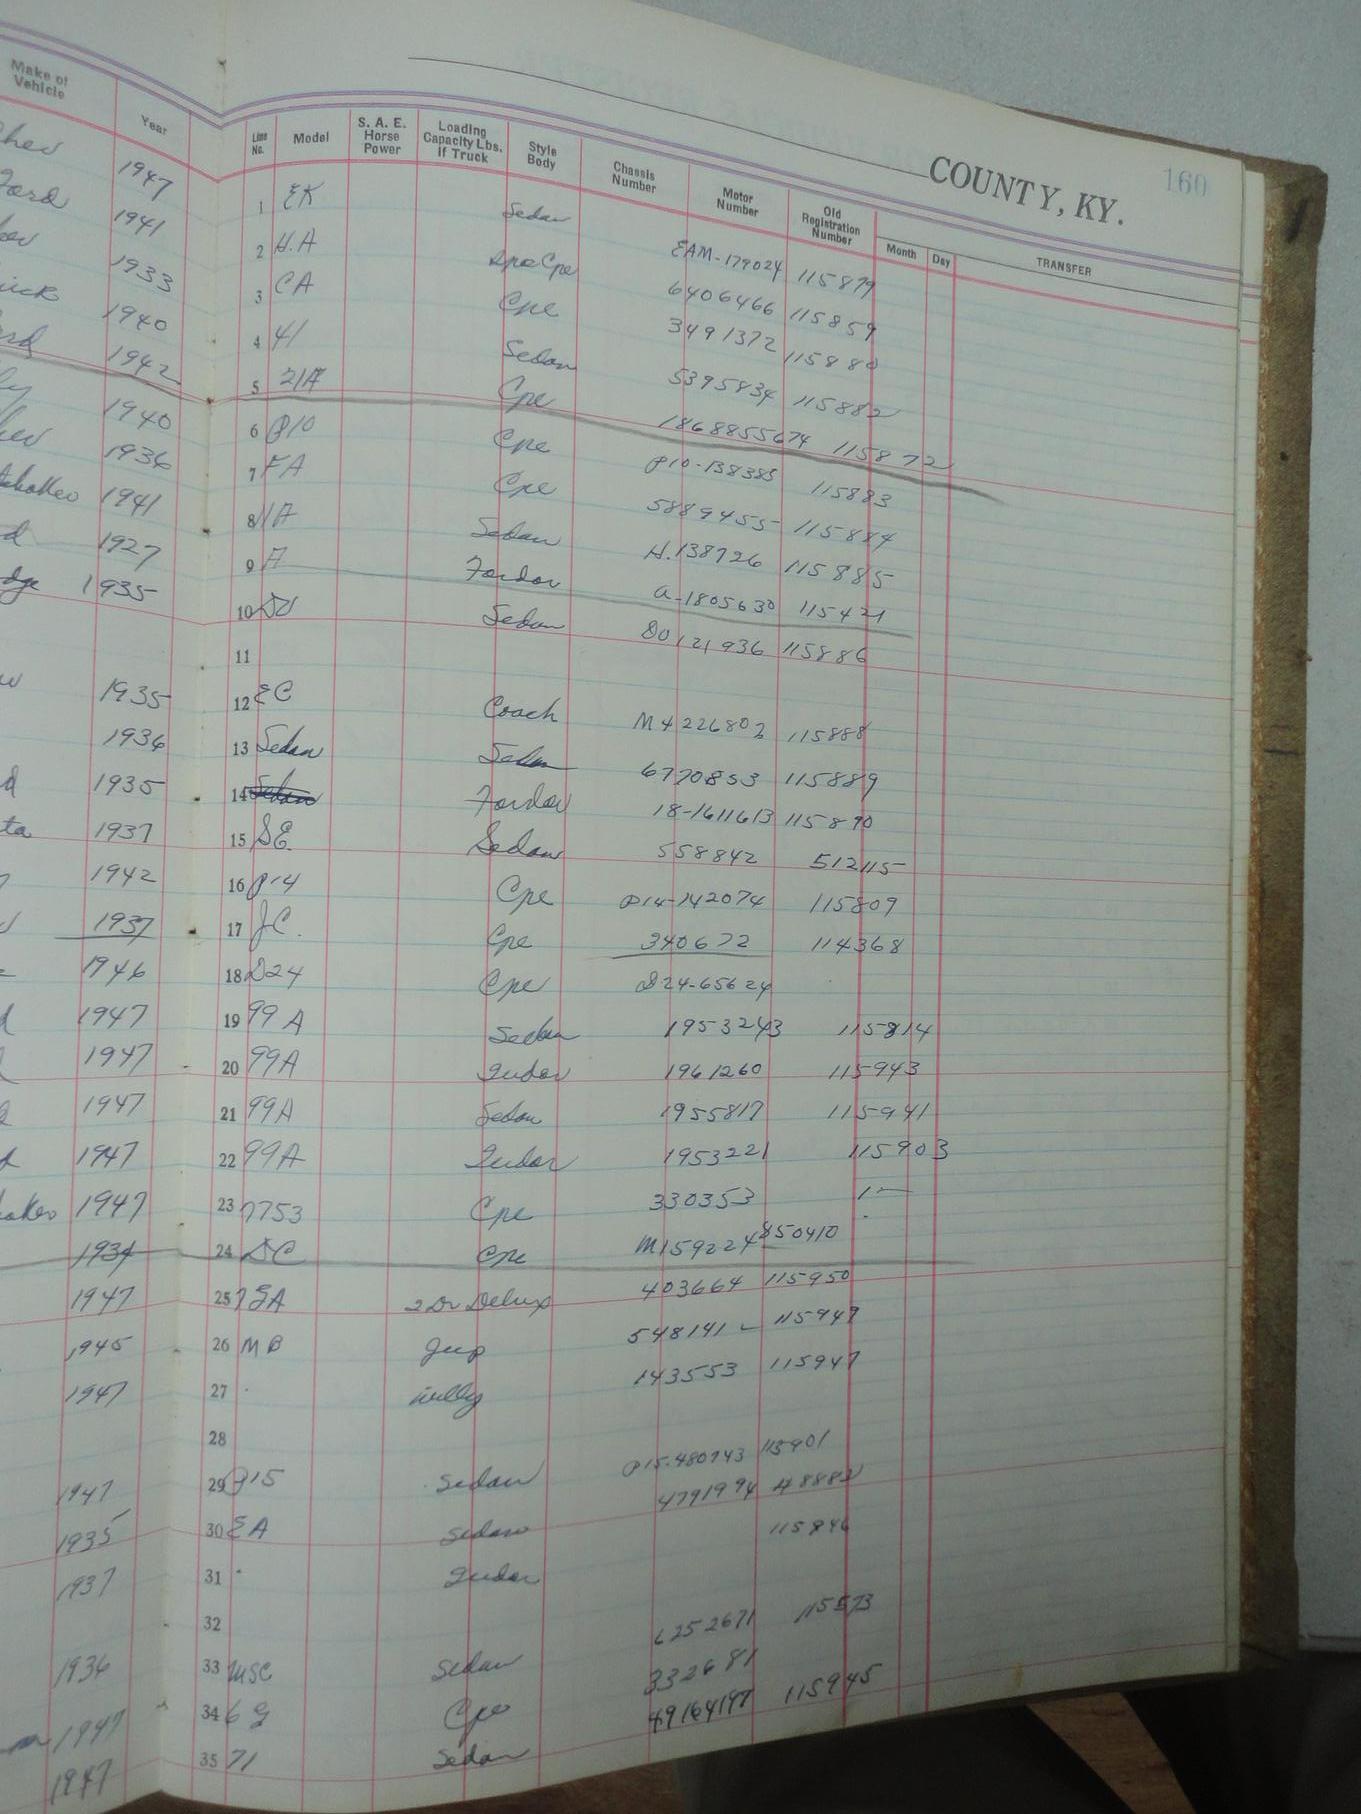 COUNTY, KY. 160
Make of Vehicle Year Line No. Model S. A. E. Horse Power Loading Capacity Lbs. if Truck Style Body Chassis Number Motor Number Old Registration Number Month Day TRANSFER
Chev 1947 1 EK Sedan EAM-179024 115879
Ford 1941 2 H.A Spo Cpe 6406466 115859
1933 3 CA Cpe 3491372 115880
1940 4 41 Sedan 5395834 115882
1942 5 21A Cpe 1868855674 115872
1940 6 P10 Cpe P10-138385 115883
1936 7 FA Cpe 5889455 115884
1941 8 Sedan H.138726 115885
1927 9 A Fordor A-1805630 115421
1935 10 DU Sedan DU121936 115886
11
1935 12 EC Coach M4226802 115888
1936 13 Sedan Sedan 6770853 115889
1935 14 Sedan Fordor 18-1611613 115890
1937 15 SE Sedan 558842 512115
1942 16 P14 Cpe P14-142074 115809
1937 17 JC. Cpe 340672 114368
1946 18 D24 Cpe D24-65624
1947 19 99A Sedan 1953243 115814
1947 20 99A Tudor 1961260 115943
1947 21 99A Sedan 1955817 115941
1947 22 99A Tudor 1953221 115903
1947 23 7753 Cpe 330353
1934 24 DC Cpe M159224 850410
1947 25 7GA 2 Dr Delux 403664 115950
1945 26 MB Jeep 548141 - 115949
1947 27 Willy 143553 115947
28
1947 29 P15 Sedan P15-480743 115901
1935 30 EA Sedan 4791994
1937 31 Tudor 115846
32
1936 33 Sedan 6252671 115573
1947 34 6G Cpe 332681
1947 35 71 Sedan 49164197 115945